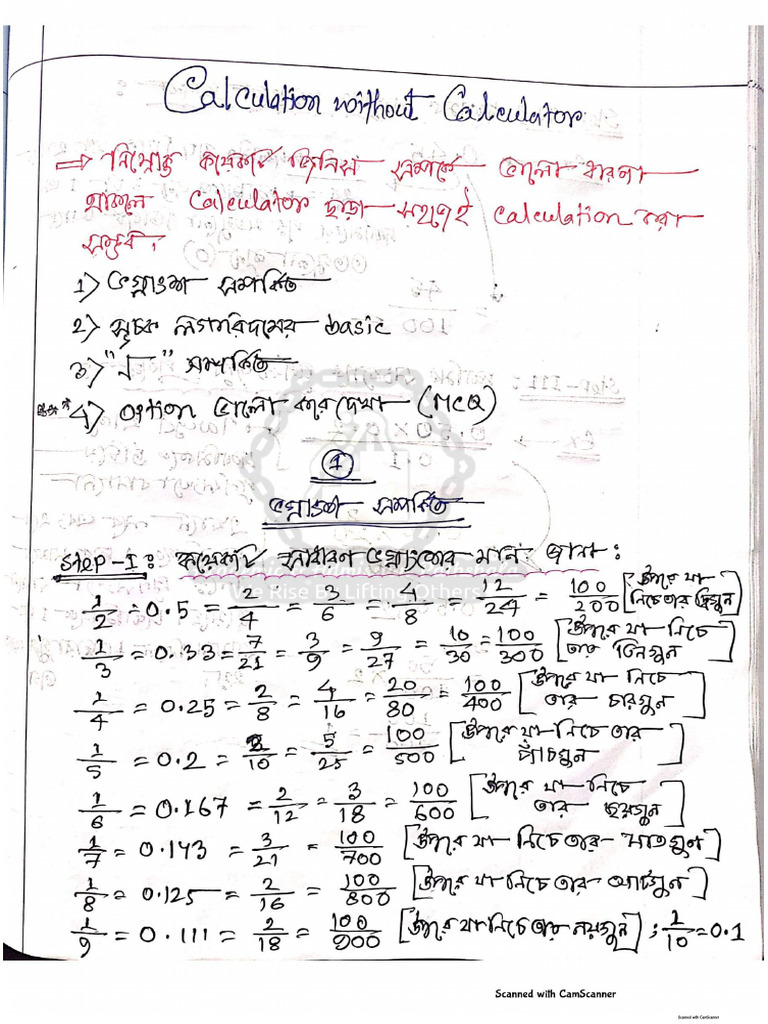 Calculation without Calculator
⇒ নিম্নোক্ত কয়েকটি জিনিস সম্পর্কে ভালো ধারণা
থাকলে Calculator ছাড়া সহজেই Calculation করা
সম্ভব।
1) ভগ্নাংশ সম্পর্কিত
2) সূচক লগারিদমের basic
3) "√" সম্পর্কিত
4) option ভালো করে দেখা (MCQ)
1
ভগ্নাংশ সম্পর্কিত
Step-I: কয়েকটি সাধারণ ভগ্নাংশের মান জানা:
The Rise By Lifting Others
1/2 = 0.5 = 2/4 = 3/6 = 4/8 = 12/24 = 100/200 [উপরে যা নিচে তার দ্বিগুন]
1/3 = 0.33 = 7/21 = 3/9 = 9/27 = 10/30 = 100/300 [উপরে যা নিচে তার তিনগুন]
1/4 = 0.25 = 2/8 = 4/16 = 20/80 = 100/400 [উপরে যা নিচে তার চারগুন]
1/5 = 0.2 = 2/10 = 5/25 = 100/500 [উপরে যা নিচে তার পাঁচগুন]
1/6 = 0.167 = 2/12 = 3/18 = 100/600 [উপরে যা নিচে তার ছয়গুন]
1/7 = 0.143 = 3/21 = 100/700 [উপরে যা নিচে তার সাতগুন]
1/8 = 0.125 = 2/16 = 100/800 [উপরে যা নিচে তার আটগুন]
1/9 = 0.111 = 2/18 = 100/900 [উপরে যা নিচে তার নয়গুন] ; 1/10 = 0.1
Scanned with CamScanner
Scanned with CamScanner